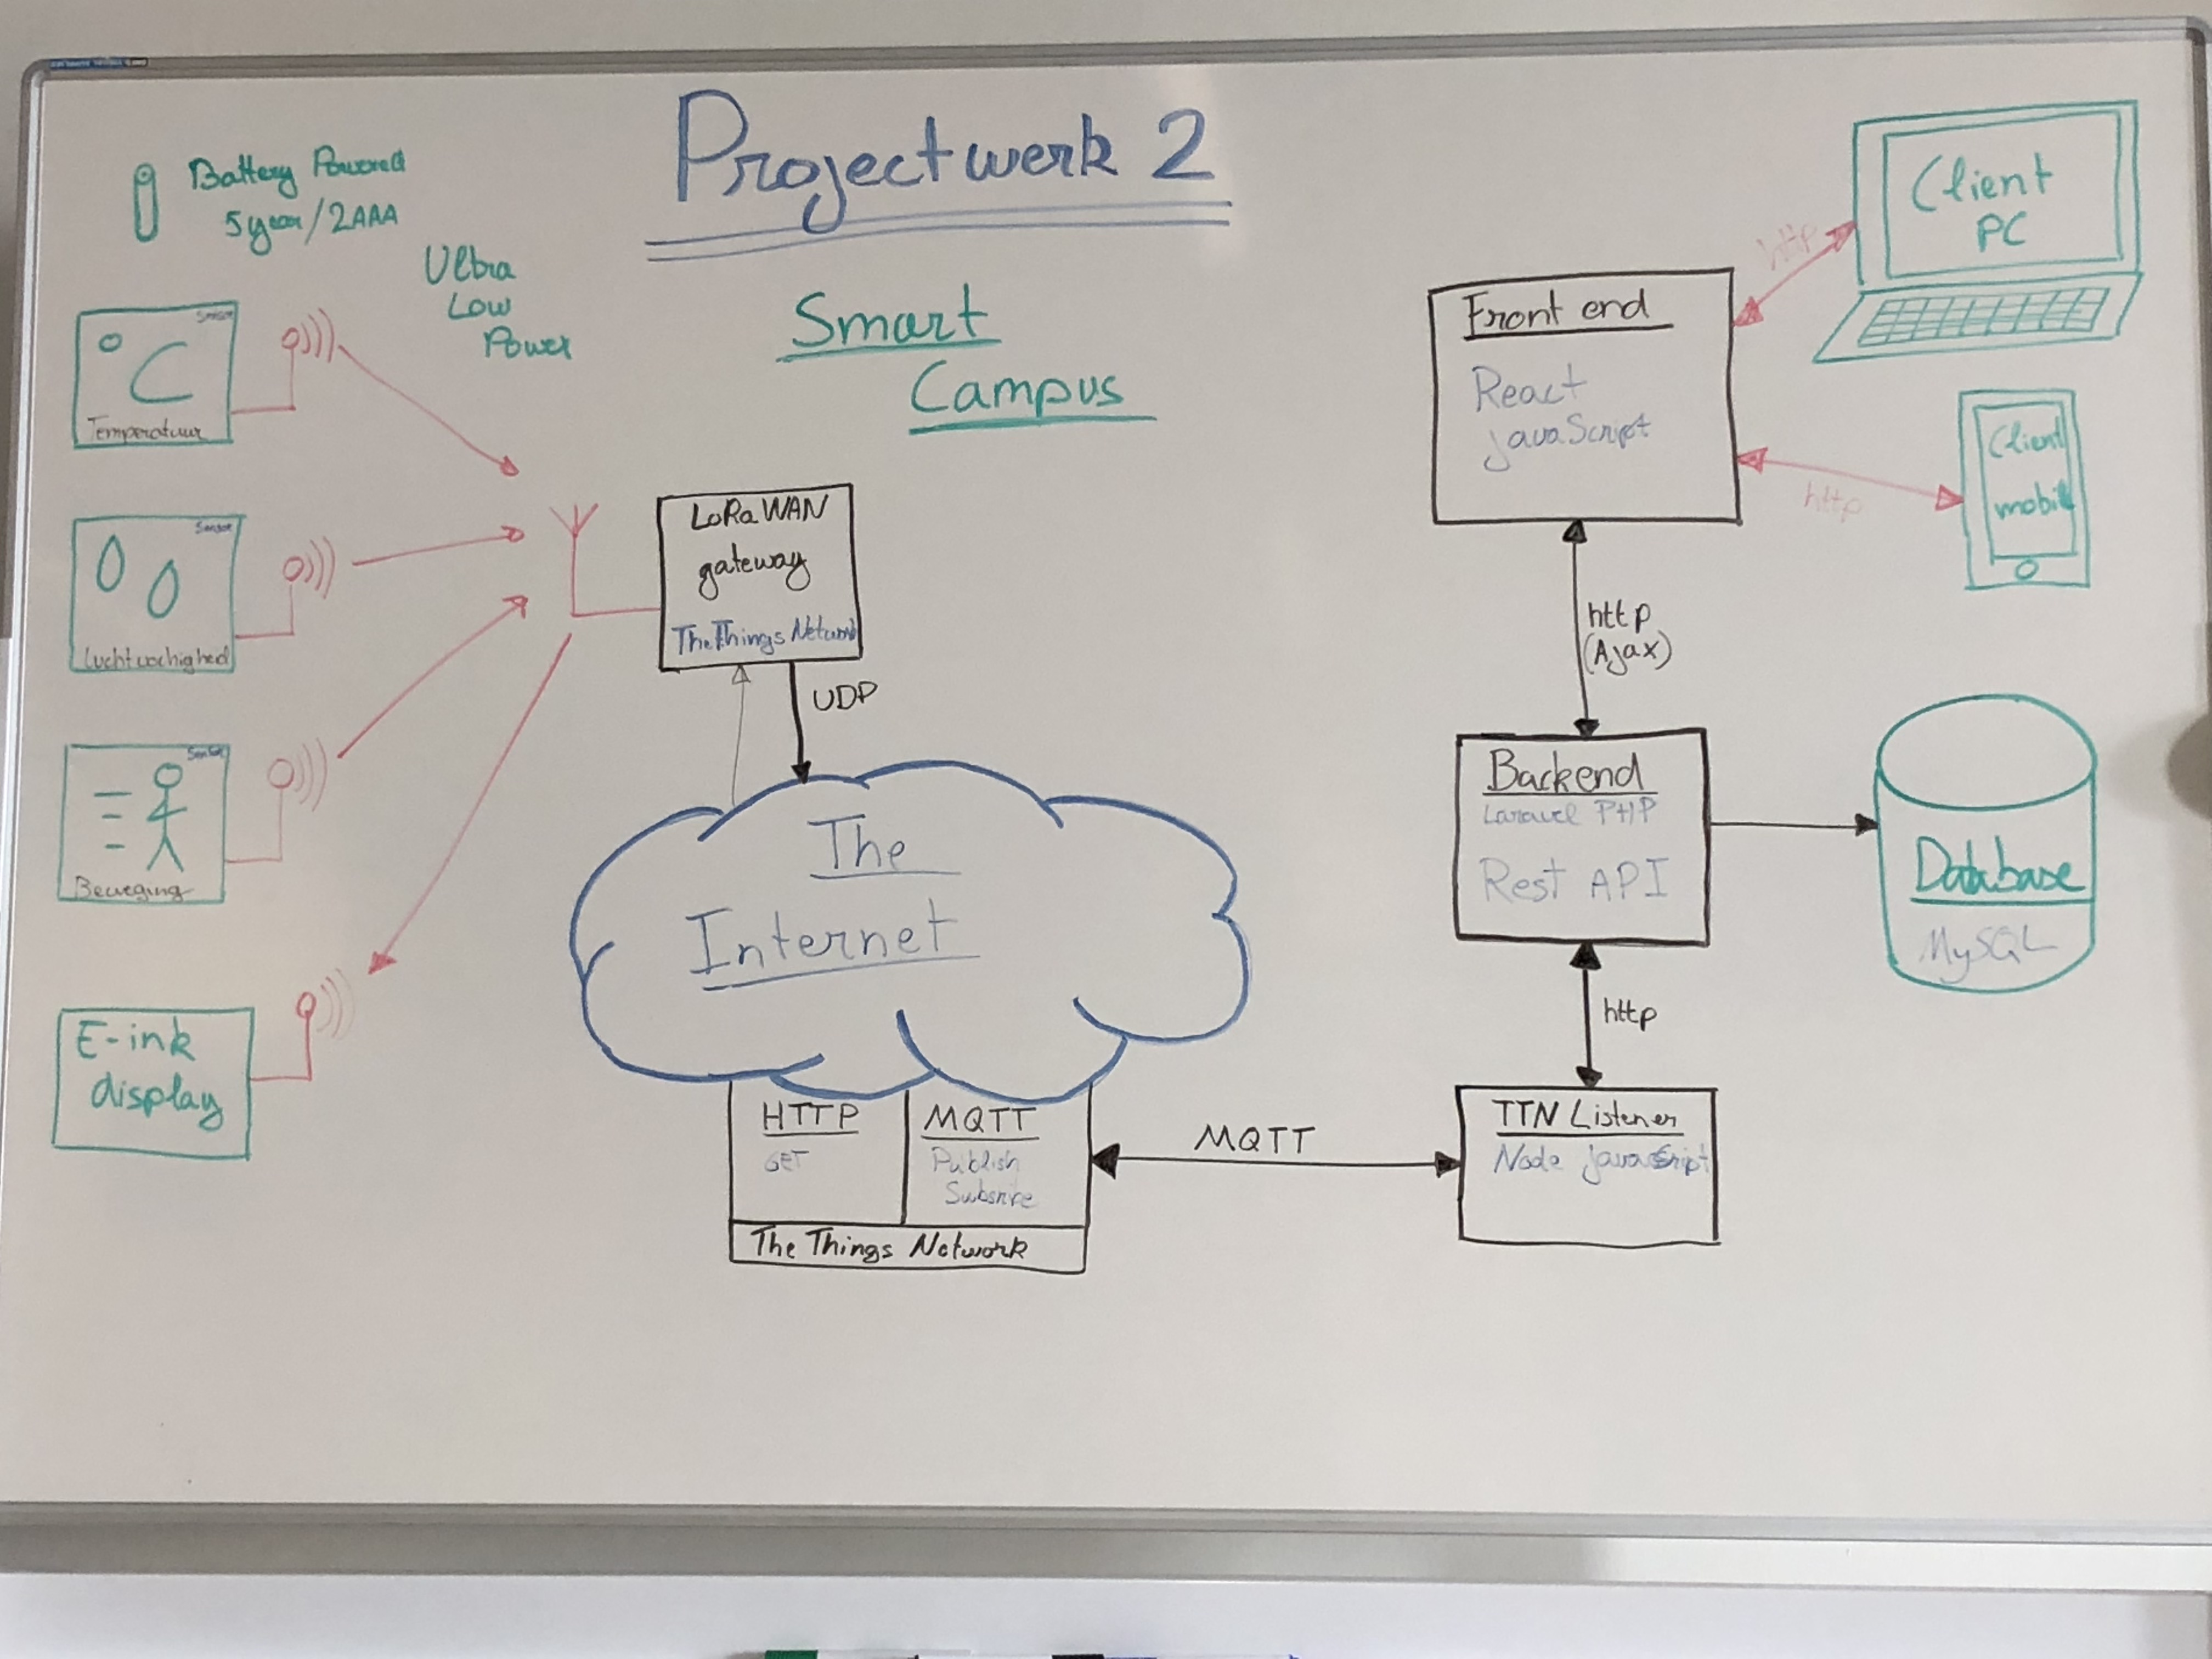 Projectwerk 2
Smart
Campus
Battery Powered
5year/2AAA
Ultra
Low
Power
Sensor
C
Temperatuur
Sensor
Luchtvochighed
Sensor
Beweging
E-ink
display
LoRaWAN
gateway
The Things Network
UDP
The
Internet
HTTP
GET
MQTT
Publish
Subsribe
The Things Network
MQTT
TTN Listener
Node javaScript
http
Backend
Laravel PHP
Rest API
Database
MySQL
http
(Ajax)
Front end
React
javaScript
http
Client
PC
http
Client
mobil